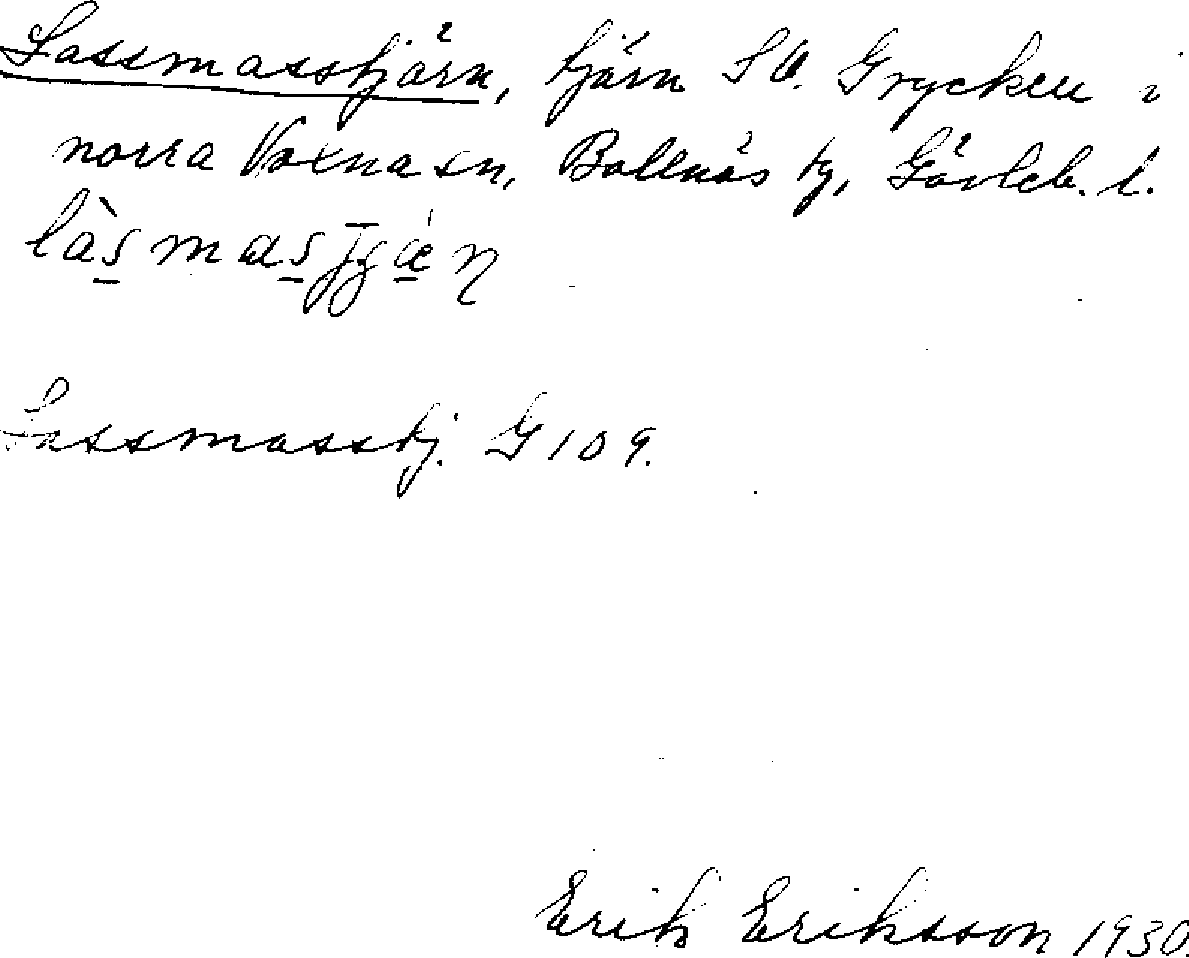 Lassmasstjärn, tjärn SV. Grycken i
norra Voxna sn, Bollnäs tg, Gävleb. l.
Lassmasstj. G 109.
Erik Eriksson 1930.